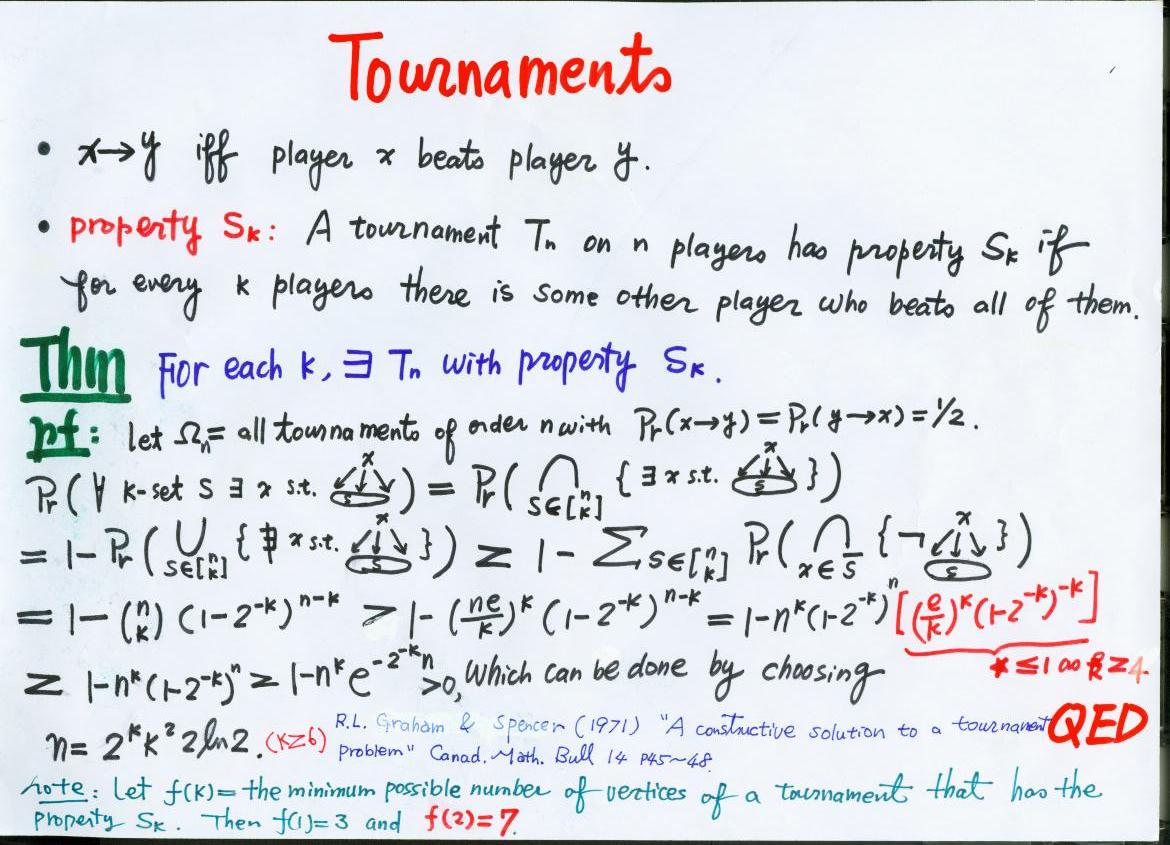 Tournaments
• x→y iff player x beats player y.
• property Sₖ: A tournament Tₙ on n players has property Sₖ if
for every k players there is some other player who beats all of them.
Thm For each k, ∃ Tₙ with property Sₖ.
pf: let Ωₙ= all tournaments of order n with Pr(x→y) = Pr(y→x) = 1/2.
Pr(∀ k-set S ∃ x s.t. x S) = Pr(⋂_{S∈[n k]} {∃ x s.t. x S})
= 1-Pr(⋃_{S∈[n k]} {∄ x s.t. x S}) ≥ 1 - Σ_{S∈[n k]} Pr(⋂_{x∈S̄} {¬ x S})
= 1-(n k)(1-2^{-k})^{n-k} > 1-(ne/k)^k (1-2^{-k})^{n-k} = 1-n^k(1-2^{-k})^n [(e/k)^k(1-2^{-k})^{-k}]
≥ 1-n^k(1-2^{-k})^n ≥ 1-n^k e^{-2^{-k}n} >0, which can be done by choosing ≤1 as k≥4
n= 2^k k² 2ln2. (k≥6) R.L. Graham & Spencer (1971) "A constructive solution to a tournament QED
problem" Canad. Math. Bull 14 P45~48.
note: Let f(k)= the minimum possible number of vertices of a tournament that has the
property Sₖ. Then f(1)=3 and f(2)=7.